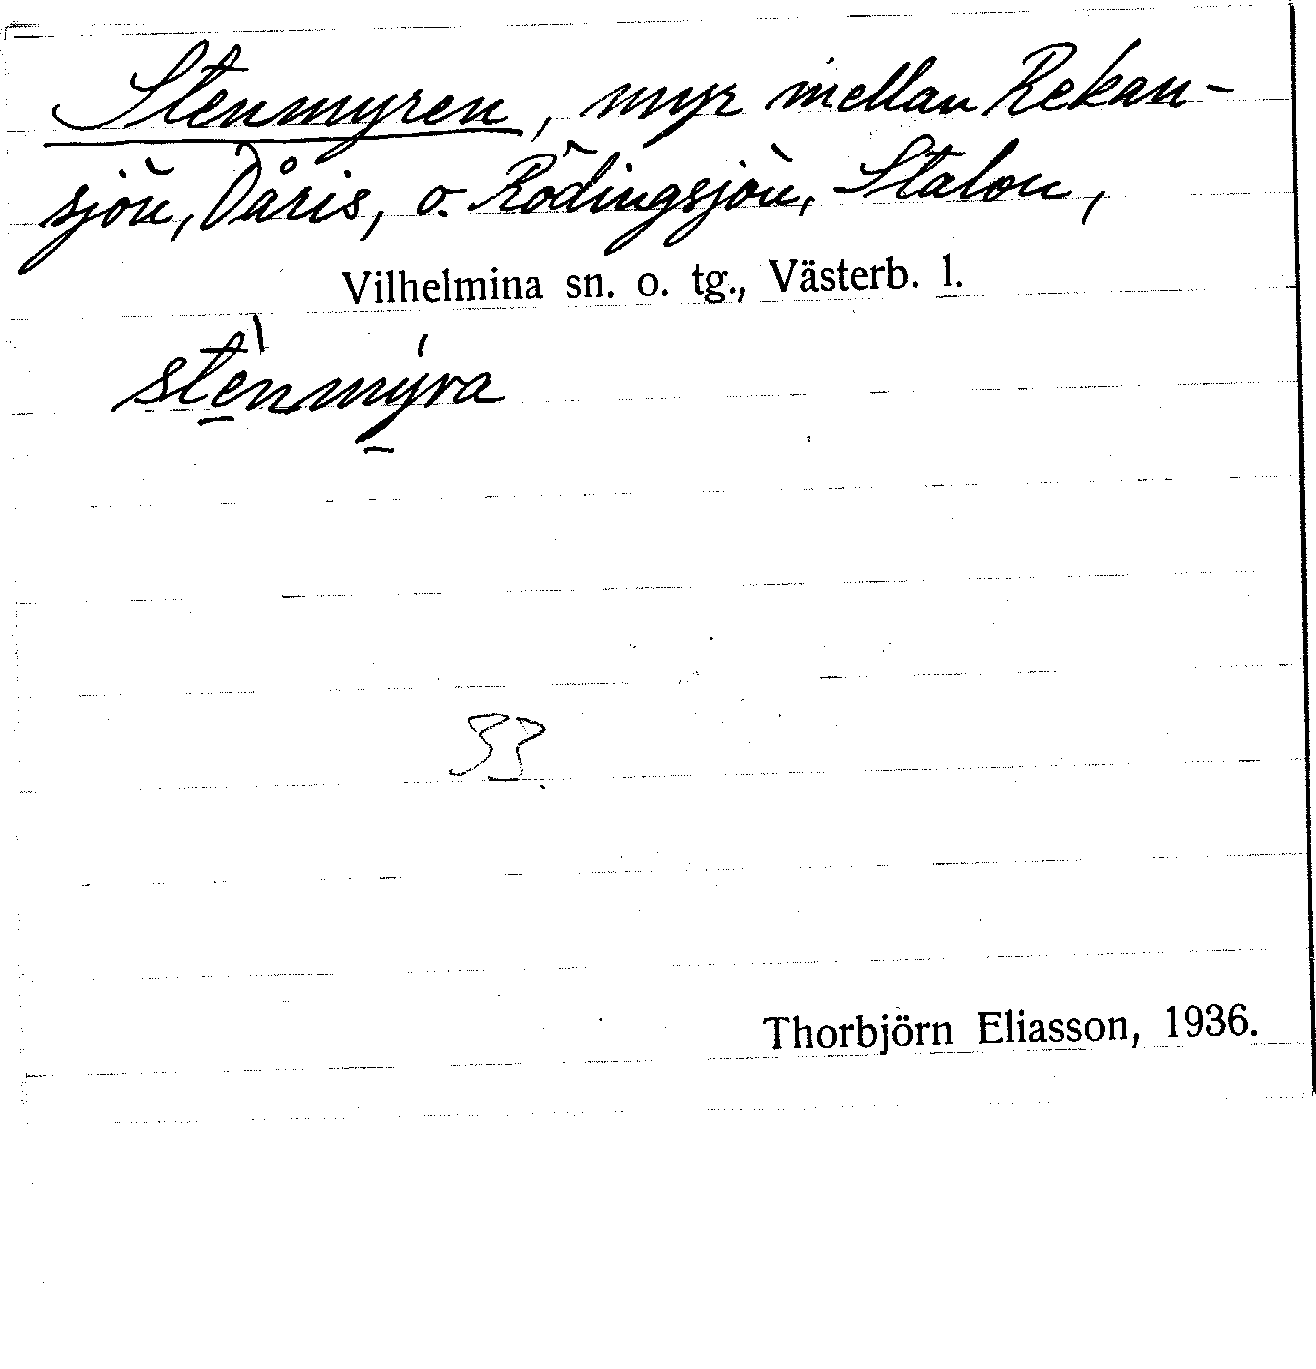 Stenmyren, myr mellan Rekan-
sjön, Dåris, o. Rödingsjön, Stalon,
Vilhelmina sn. o. tg., Västerb. l.
stènmýra
33
Thorbjörn Eliasson, 1936.